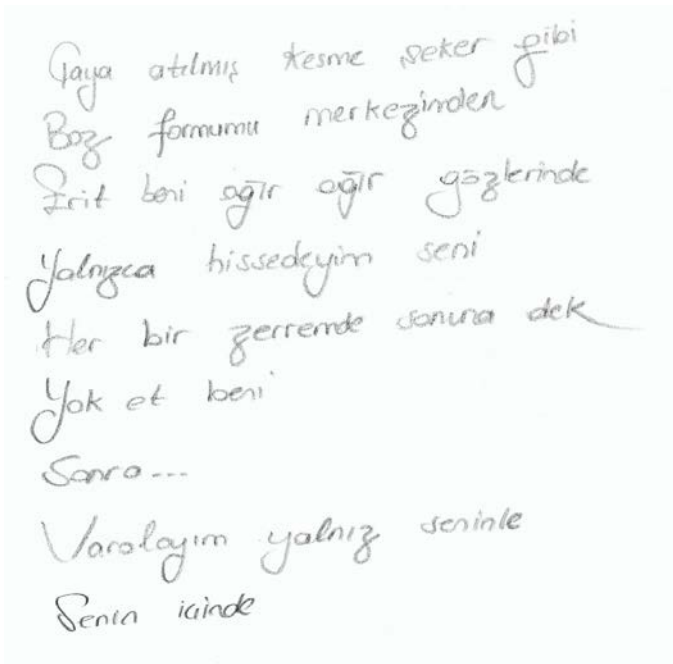 Çaya atılmış kesme şeker gibi
Boz formumu merkezimden
Erit beni ağır ağır gözlerinde
Yalnızca hissedeyim seni
Her bir zerremde sonuna dek
Yok et beni
Sonra...
Varolayım yalnız seninle
Senin içinde